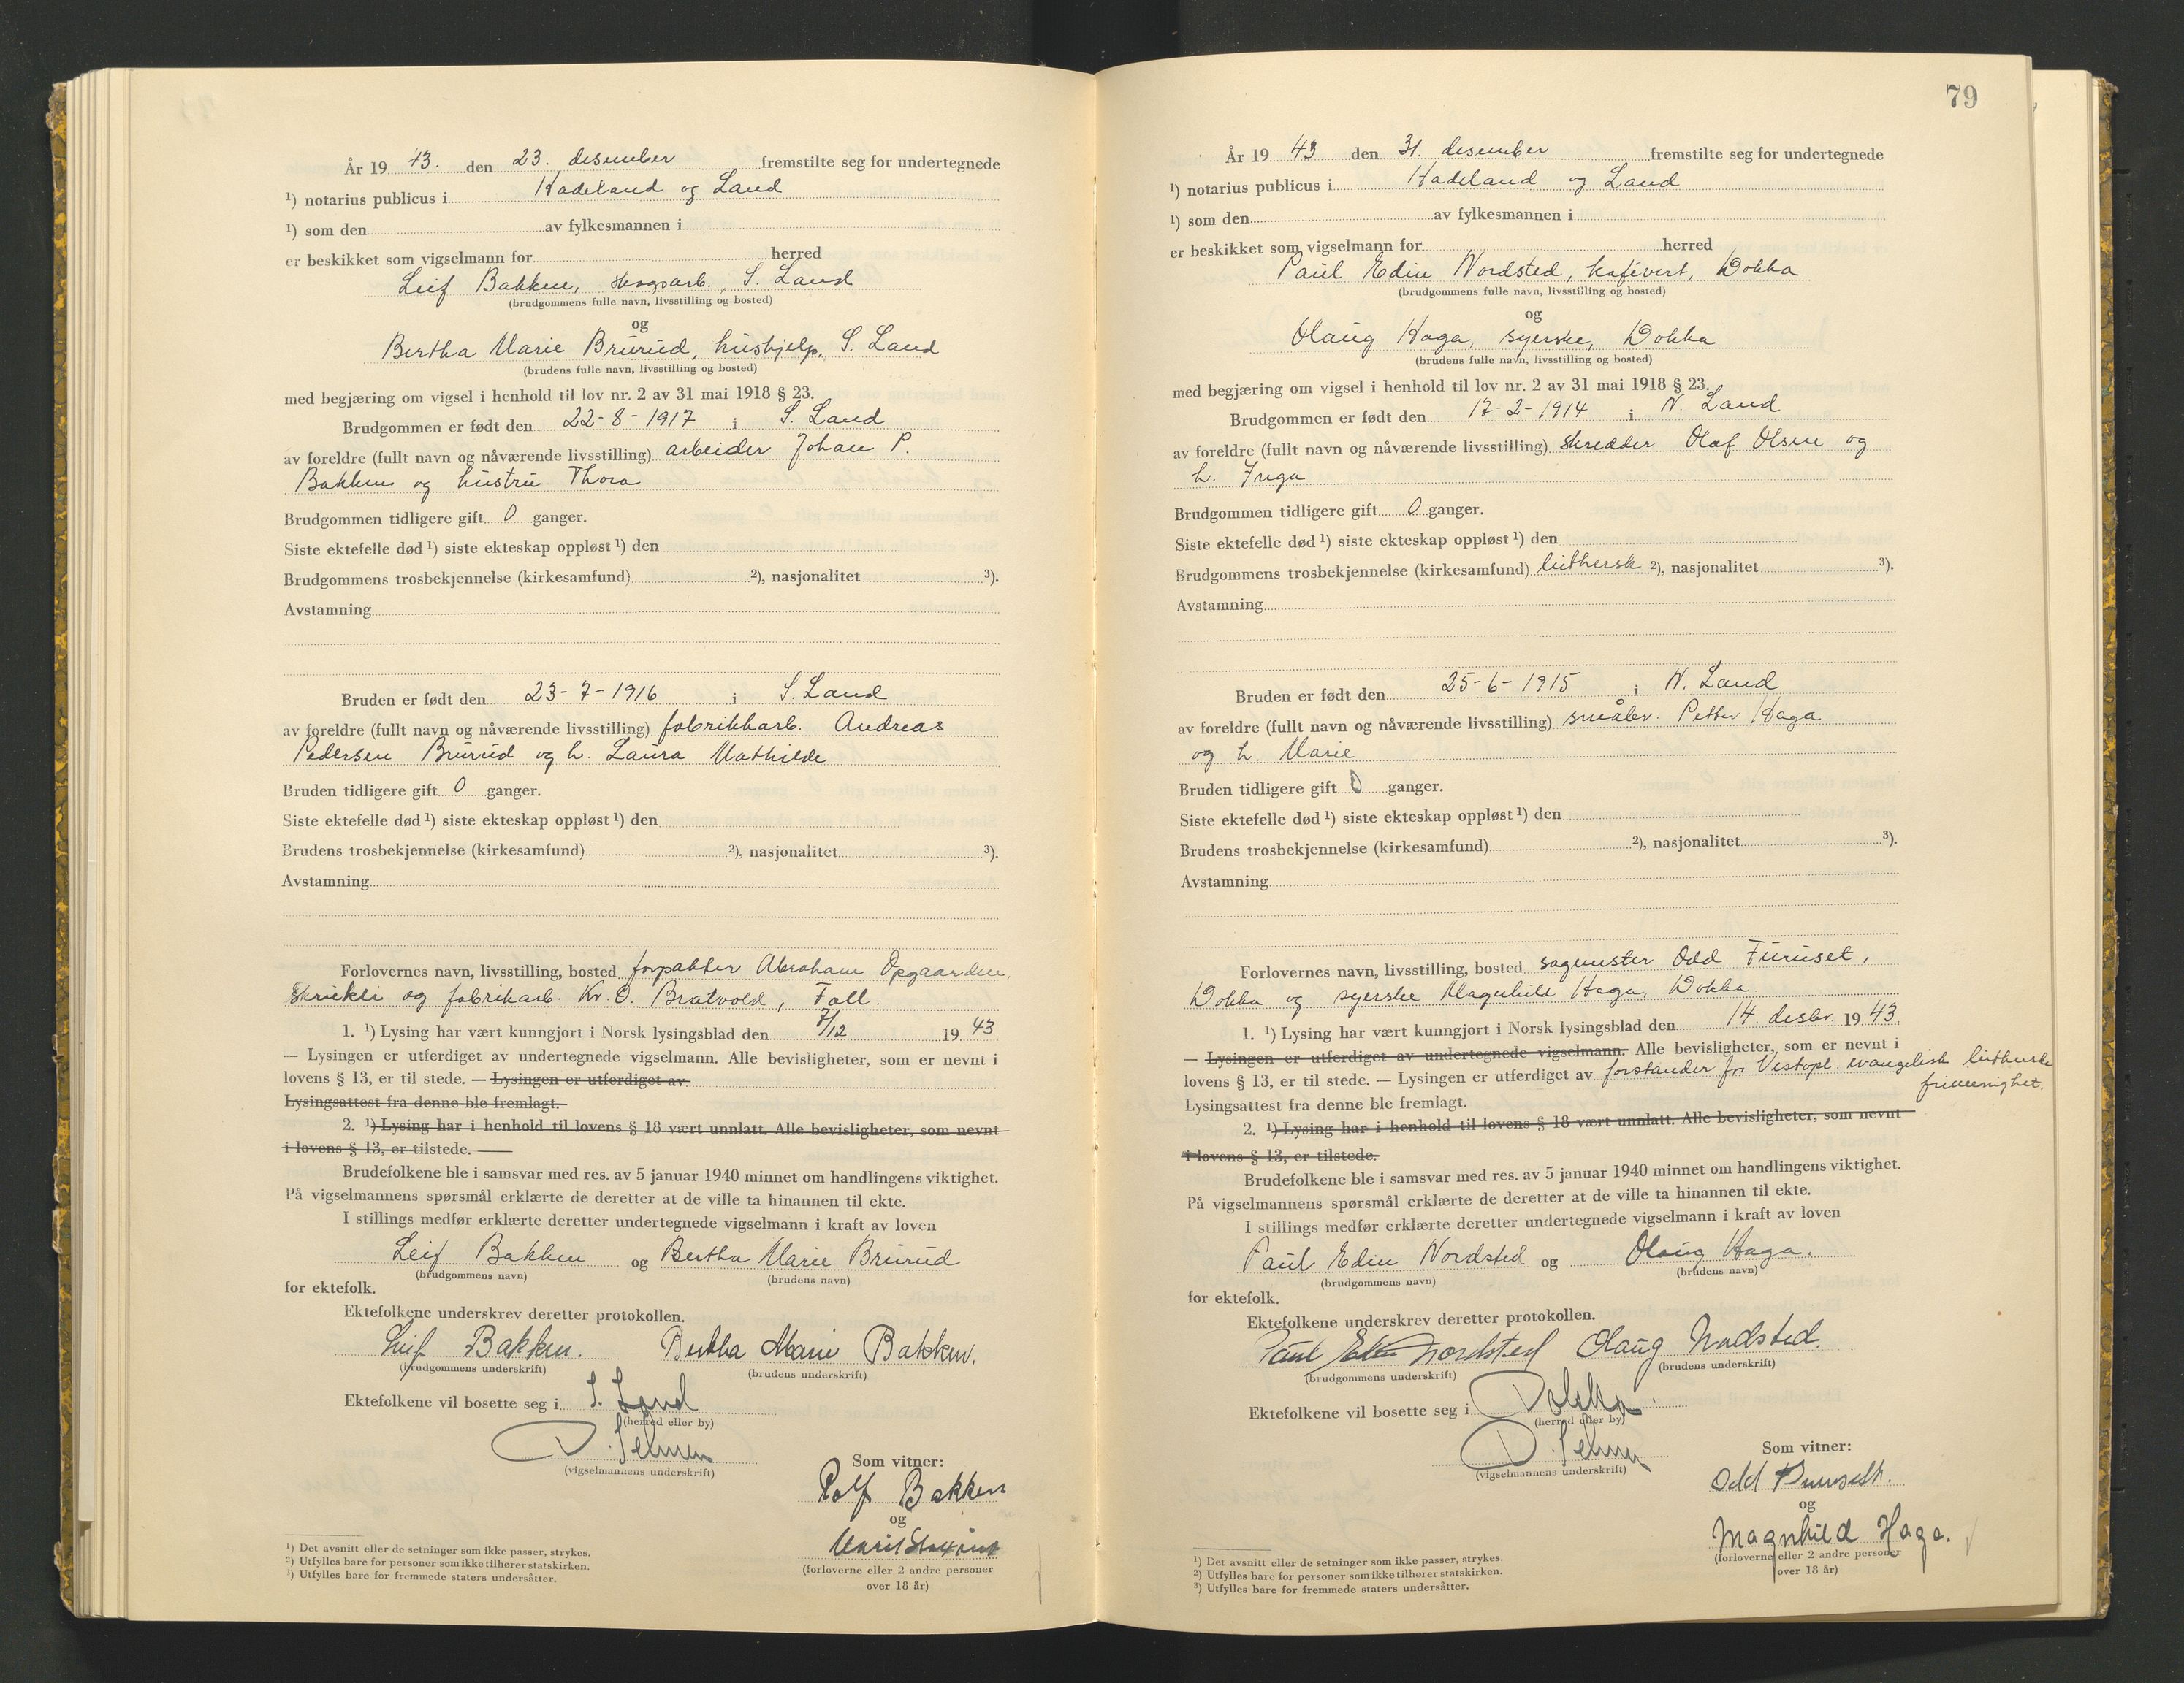 År 19 43. den 23. desember fremstilte seg for undertegnede
¹) notarius publicus i Hadeland og Land
¹) som den av fylkesmannen i
er beskikket som vigselmann for herred
Leif Bakken, skogsarb., S. Land
(brudgommens fulle navn, livsstilling og bosted)
og
Bertha Marie Brurud, hushjelp, S. Land
(brudens fulle navn, livsstilling og bosted)
med begjæring om vigsel i henhold til lov nr. 2 av 31 mai 1918 § 23.
Brudgommen er født den 22-8-1917 i S. Land
av foreldre (fullt navn og nåværende livsstilling) arbeider Johan P.
Bakken og hustru Thora
Brudgommen tidligere gift 0 ganger.
Siste ektefelle død ¹) siste ekteskap oppløst ¹) den
Brudgommens trosbekjennelse (kirkesamfund) ²), nasjonalitet ³).
Avstamning
Bruden er født den 23-7-1916 i S. Land
av foreldre (fullt navn og nåværende livsstilling) fabrikkarb. Andreas
Pedersen Brurud og h. Laura Mathilde
Bruden tidligere gift 0 ganger.
Siste ektefelle død ¹) siste ekteskap oppløst ¹) den
Brudens trosbekjennelse (kirkesamfund) ²), nasjonalitet ³).
Avstamning
Forlovernes navn, livsstilling, bosted forpakter Abraham Opgaarden,
Skrukli og fabrikarb. Kr. O. Bratvold, Fall.
1. ¹) Lysing har vært kunngjort i Norsk lysingsblad den 7/12 19 43
— Lysingen er utferdiget av undertegnede vigselmann. Alle bevisligheter, som er nevnt i
lovens § 13, er til stede. — Lysingen er utferdiget av
Lysingsattest fra denne ble fremlagt.
2. ¹) Lysing har i henhold til lovens § 18 vært unnlatt. Alle bevisligheter, som nevnt
i lovens § 13, er tilstede.
Brudefolkene ble i samsvar med res. av 5 januar 1940 minnet om handlingens viktighet.
På vigselmannens spørsmål erklærte de deretter at de ville ta hinannen til ekte.
I stillings medfør erklærte deretter undertegnede vigselmann i kraft av loven
Leif Bakken og Bertha Marie Brurud
(brudgommens navn) (brudens navn)
for ektefolk.
Ektefolkene underskrev deretter protokollen.
Leif Bakken. Bertha Marie Bakken.
(brudgommens underskrift) (brudens underskrift)
Ektefolkene vil bosette seg i S. Land
(herred eller by)
(vigselmannens underskrift)
Som vitner:
Rolf Bakken
og
(forloverne eller 2 andre personer
over 18 år)
¹) Det avsnitt eller de setninger som ikke passer, strykes.
²) Utfylles bare for personer som ikke tilhører statskirken.
³) Utfylles bare for fremmede staters undersåtter.
79
År 19 43 den 31. desember fremstilte seg for undertegnede
¹) notarius publicus i Hadeland og Land
¹) som den av fylkesmannen i
er beskikket som vigselmann for herred
Paul Edin Nordsted, kafévert, Dokka
(brudgommens fulle navn, livsstilling og bosted)
og
Olaug Haga, syerske, Dokka
(brudens fulle navn, livsstilling og bosted)
med begjæring om vigsel i henhold til lov nr. 2 av 31 mai 1918 § 23.
Brudgommen er født den 17-2-1914 i N. Land
av foreldre (fullt navn og nåværende livsstilling) skredder Olaf Olsen og
h. Inga
Brudgommen tidligere gift 0 ganger.
Siste ektefelle død ¹) siste ekteskap oppløst ¹) den
Brudgommens trosbekjennelse (kirkesamfund) luthersk ²), nasjonalitet ³).
Avstamning
Bruden er født den 25-6-1915 i N. Land
av foreldre (fullt navn og nåværende livsstilling) småbr. Petter Haga
og h. Marie
Bruden tidligere gift 0 ganger.
Siste ektefelle død ¹) siste ekteskap oppløst ¹) den
Brudens trosbekjennelse (kirkesamfund) ²), nasjonalitet ³).
Avstamning
Forlovernes navn, livsstilling, bosted sagmester Odd Furuset,
Dokka og syerske Magnhild Haga, Dokka.
1. ¹) Lysing har vært kunngjort i Norsk lysingsblad den 14. desbr. 19 43.
— Lysingen er utferdiget av undertegnede vigselmann. Alle bevisligheter, som er nevnt i
lovens § 13, er til stede. — Lysingen er utferdiget av forstander for Vestopl. evangelisk lutherske
frimenighet.
Lysingsattest fra denne ble fremlagt.
2. ¹) Lysing har i henhold til lovens § 18 vært unnlatt. Alle bevisligheter, som nevnt
i lovens § 13, er tilstede.
Brudefolkene ble i samsvar med res. av 5 januar 1940 minnet om handlingens viktighet.
På vigselmannens spørsmål erklærte de deretter at de ville ta hinannen til ekte.
I stillings medfør erklærte deretter undertegnede vigselmann i kraft av loven
Paul Edin Nordsted og Olaug Haga.
(brudgommens navn) (brudens navn)
for ektefolk.
Ektefolkene underskrev deretter protokollen.
Paul Edin Nordsted Olaug Nordsted.
(brudgommens underskrift) (brudens underskrift)
Ektefolkene vil bosette seg i Dokka.
(herred eller by)
(vigselmannens underskrift)
Som vitner:
Odd Furuseth.
og
Magnhild Haga.
(forloverne eller 2 andre personer
over 18 år)
¹) Det avsnitt eller de setninger som ikke passer, strykes.
²) Utfylles bare for personer som ikke tilhører statskirken.
³) Utfylles bare for fremmede staters undersåtter.